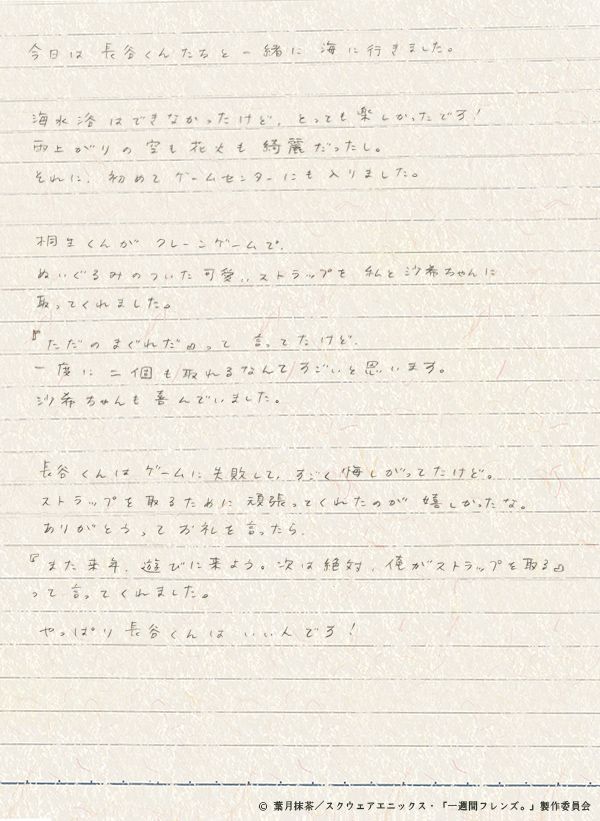 今日は長谷くんたちと一緒に海に行きました。
海水浴はできなかったけど、とっても楽しかったです!
雨上がりの空も花火も綺麗だったし。
それに、初めてゲームセンターにも入りました。
桐生くんがクレーンゲームで、
ぬいぐるみのついた可愛いストラップを私と沙希ちゃんに
取ってくれました。
『ただのまぐれだ』って言ってたけど、
一度に二個も取れるなんてすごいと思います。
沙希ちゃんも喜んでいました。
長谷くんはゲームに失敗して、すごく悔しがってたけど。
ストラップを取るために頑張ってくれたのが嬉しかったな。
ありがとうってお礼を言ったら、
『また来年、遊びに来よう。次は絶対、俺がストラップを取る』
って言ってくれました。
やっぱり長谷くんはいい人です!
© 葉月抹茶/スクウェアエニックス・「一週間フレンズ。」製作委員会